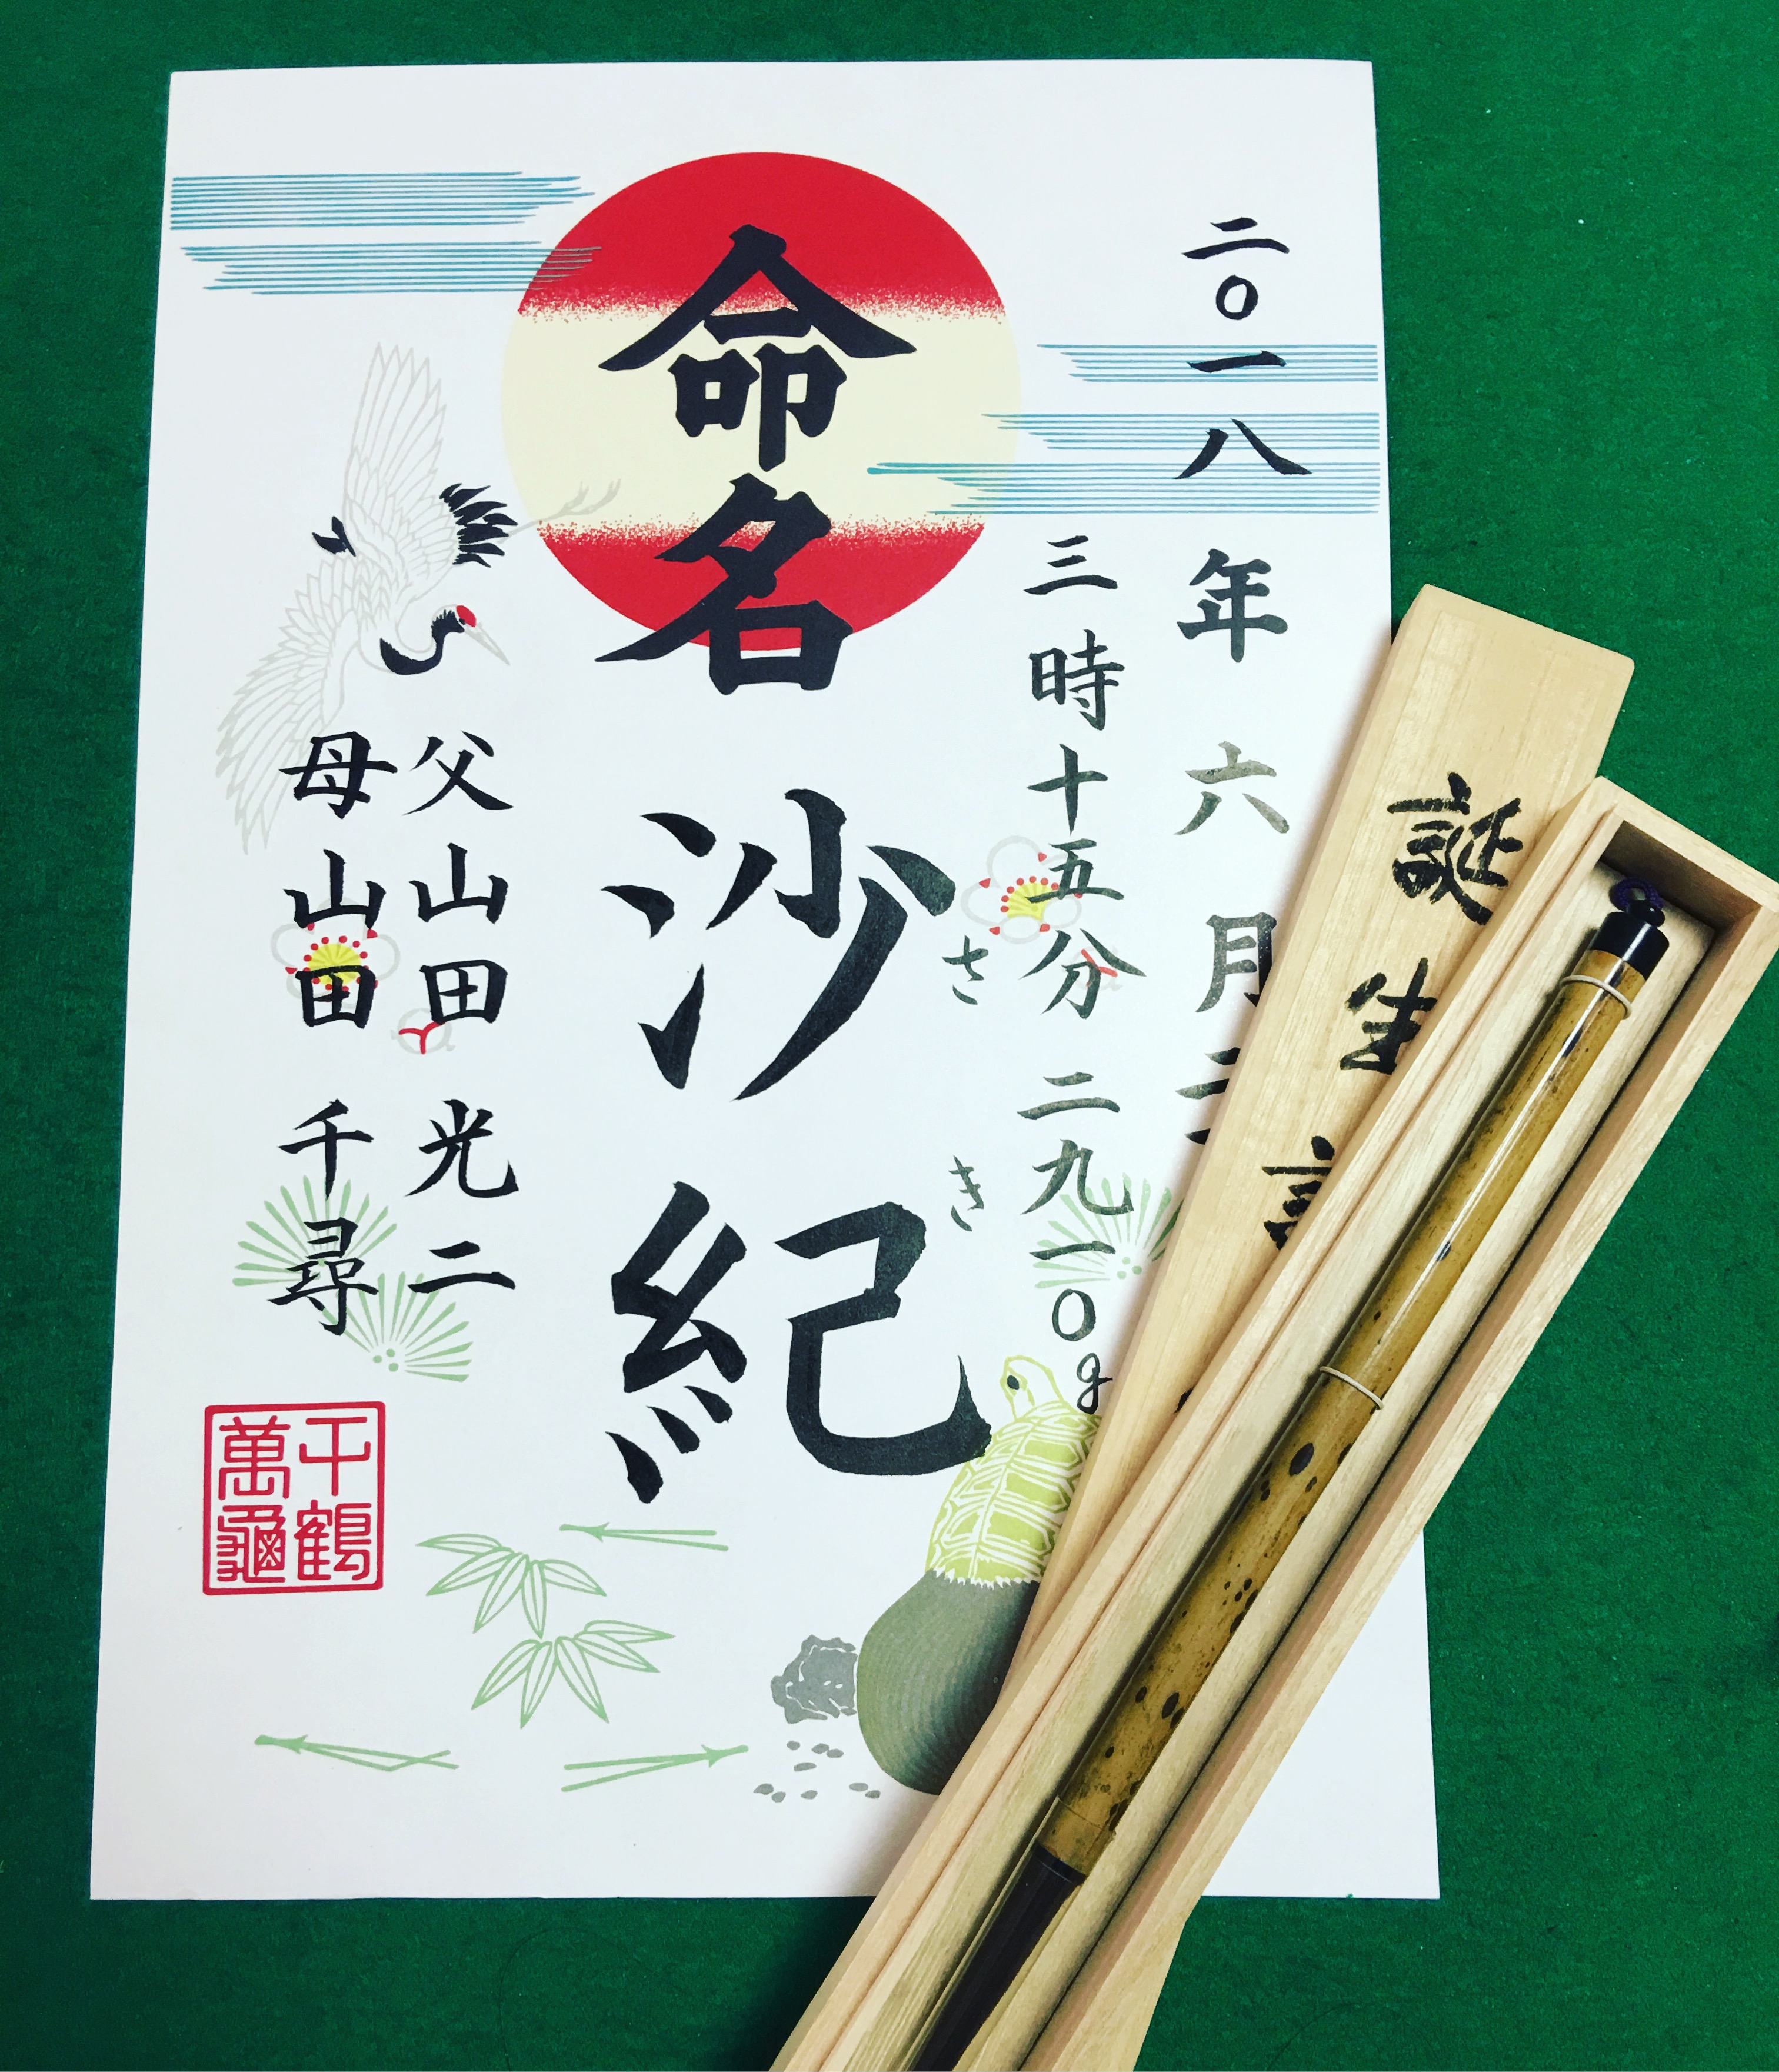 二〇一八年 六月
三時十五分 二九一〇g
命名 沙紀
さき
父 山田 光二
母 山田 千尋
千鶴
萬龜
誕生